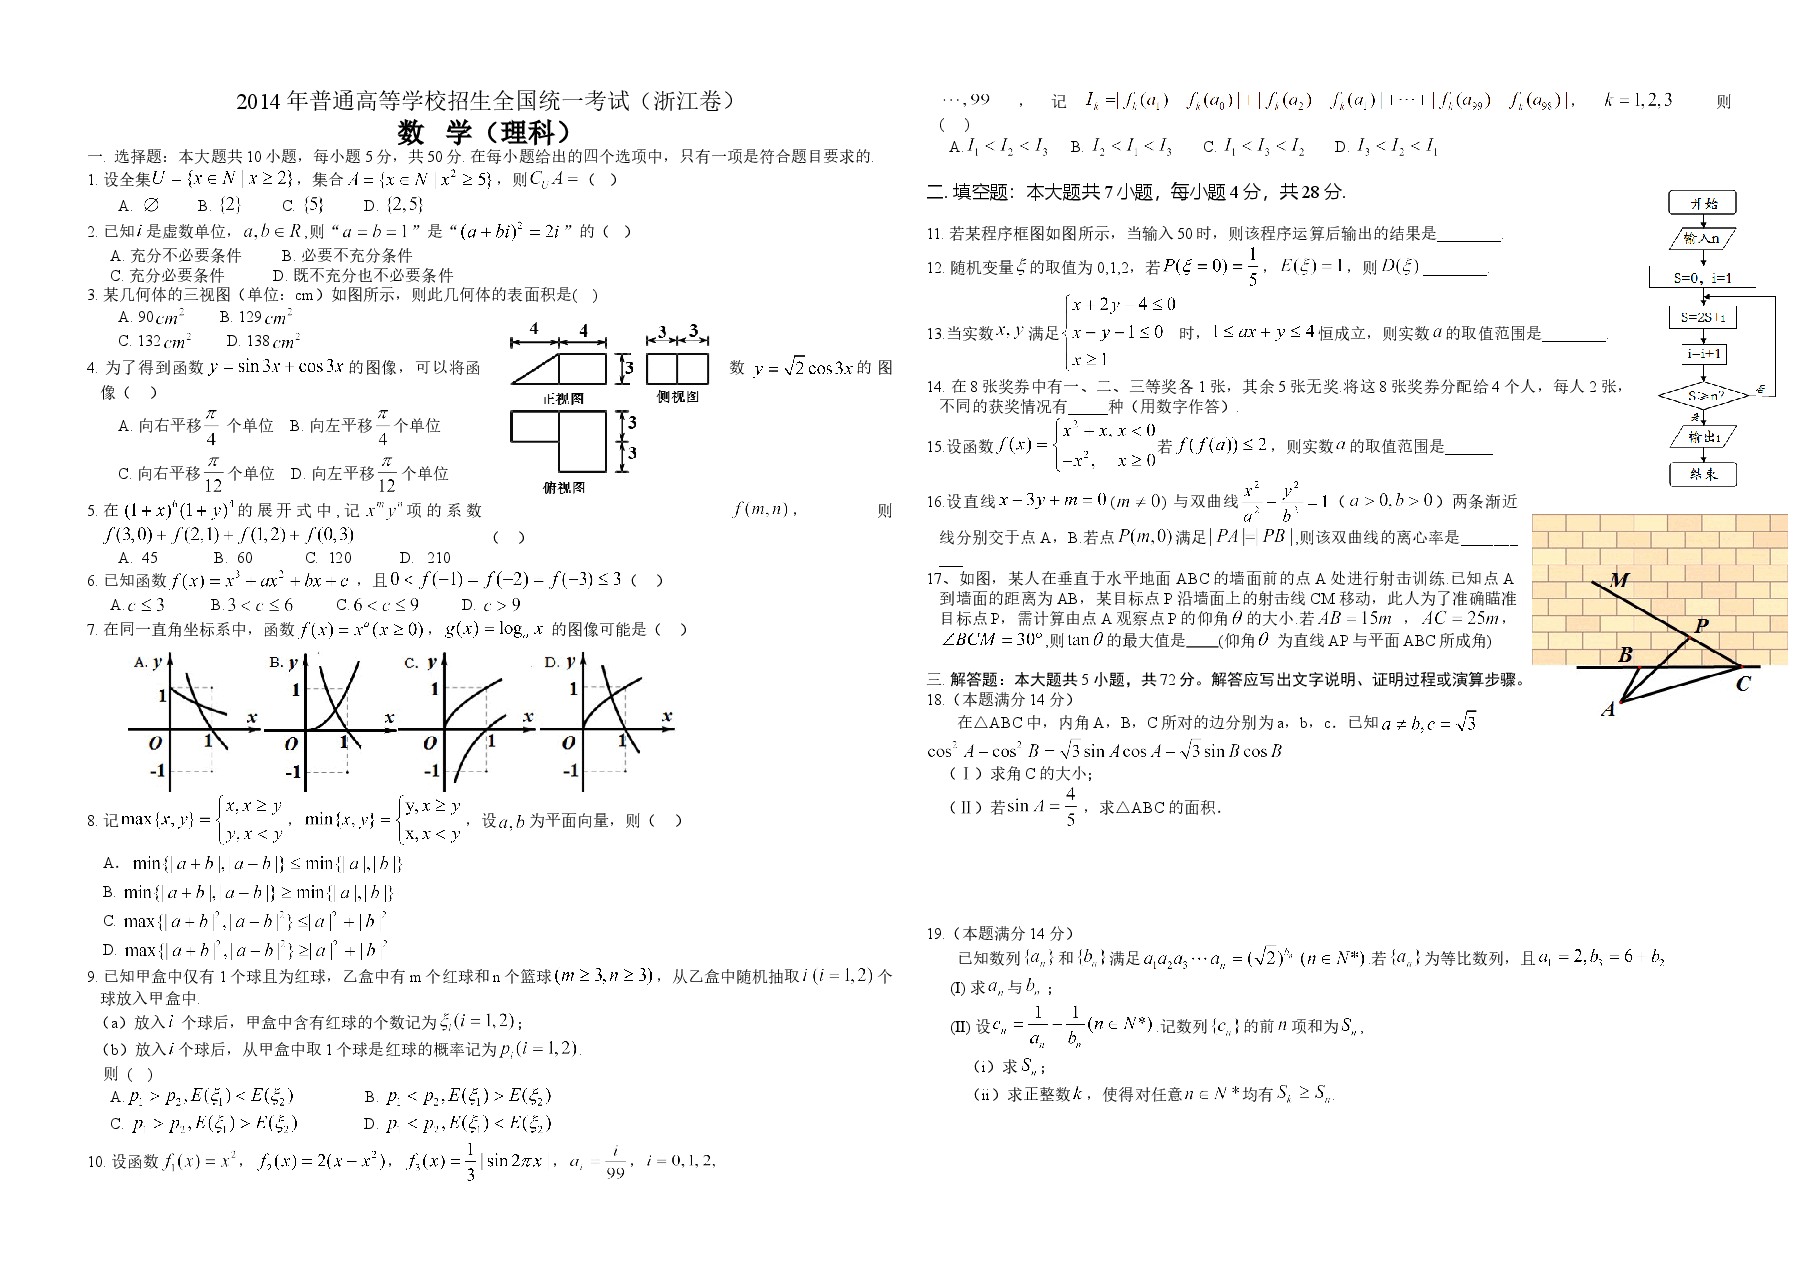 2014 年普通高等学校招生全国统一考试（浙江卷）
数 学（理科）
一. 选择题：本大题共 10 小题，每小题 5 分，共 50 分. 在每小题给出的四个选项中，只有一项是符合题目要求的.
1. 设全集 U = {x ∈ N | x ≥ 2}，集合 A = {x ∈ N | x² ≥ 5}，则 C_U A =（ ）
A. ∅ B. {2} C. {5} D. {2,5}
2. 已知 i 是虚数单位，a, b ∈ R ,则“ a = b = 1”是“ (a + bi)² = 2i ”的（ ）
A. 充分不必要条件 B. 必要不充分条件
C. 充分必要条件 D. 既不充分也不必要条件
3. 某几何体的三视图（单位：cm）如图所示，则此几何体的表面积是( )
A. 90 cm² B. 129 cm²
C. 132 cm² D. 138 cm²
4 4 3 3
3
正视图 侧视图
3
3
俯视图
4. 为了得到函数 y = sin 3x + cos 3x 的图像，可以将函数 y = √2 cos 3x 的图
像（ ）
A. 向右平移 π/4 个单位 B. 向左平移 π/4 个单位
C. 向右平移 π/12 个单位 D. 向左平移 π/12 个单位
5. 在 (1 + x)⁶(1 + y)⁴ 的展开式中,记 xᵐyⁿ 项的系数 f(m, n)，则
f(3,0) + f(2,1) + f(1,2) + f(0,3) （ ）
A. 45 B. 60 C. 120 D. 210
6. 已知函数 f(x) = x³ + ax² + bx + c ，且 0 < f(−1) = f(−2) = f(−3) ≤ 3（ ）
A. c ≤ 3 B. 3 < c ≤ 6 C. 6 < c ≤ 9 D. c > 9
7. 在同一直角坐标系中，函数 f(x) = xᵃ(x ≥ 0)，g(x) = logₐ x 的图像可能是（ ）
A. y B. y C. y D. y
1 1 1 1
x x x x
O 1 O 1 O 1 O 1
-1 -1 -1 -1
8. 记 max{x, y} = { x, x ≥ y ; y, x < y ，min{x, y} = { y, x ≥ y ; x, x < y ，设 a, b 为平面向量，则（ ）
A. min{| a + b |, | a − b |} ≤ min{| a |, | b |}
B. min{| a + b |, | a − b |} ≥ min{| a |, | b |}
C. max{| a + b |², | a − b |²} ≤ | a |² + | b |²
D. max{| a + b |², | a − b |²} ≥ | a |² + | b |²
9. 已知甲盒中仅有 1 个球且为红球，乙盒中有 m 个红球和 n 个篮球 (m ≥ 3, n ≥ 3)，从乙盒中随机抽取 i (i = 1,2) 个
球放入甲盒中.
（a）放入 i 个球后，甲盒中含有红球的个数记为 ξᵢ(i = 1,2)；
（b）放入 i 个球后，从甲盒中取 1 个球是红球的概率记为 pᵢ(i = 1,2).
则 ( )
A. p₁ > p₂, E(ξ₁) < E(ξ₂) B. p₁ < p₂, E(ξ₁) > E(ξ₂)
C. p₁ > p₂, E(ξ₁) > E(ξ₂) D. p₁ < p₂, E(ξ₁) < E(ξ₂)
10. 设函数 f₁(x) = x²， f₂(x) = 2(x − x²)， f₃(x) = 1/3 | sin 2πx |， aᵢ = i/99 ， i = 0,1,2,
⋯,99 ，记 Iₖ =| fₖ(a₁) fₖ(a₀) | + | fₖ(a₂) fₖ(a₁) | + ⋯ + | fₖ(a₉₉) fₖ(a₉₈) |， k = 1,2,3 则
( )
A. I₁ < I₂ < I₃ B. I₂ < I₁ < I₃ C. I₁ < I₃ < I₂ D. I₃ < I₂ < I₁
二. 填空题：本大题共 7 小题，每小题 4 分，共 28 分.
11. 若某程序框图如图所示，当输入 50 时，则该程序运算后输出的结果是________.
12. 随机变量 ξ 的取值为 0,1,2，若 P(ξ = 0) = 1/5 ，E(ξ) = 1，则 D(ξ) ________.
13.当实数 x, y 满足 { x + 2y − 4 ≤ 0 ; x − y − 1 ≤ 0 ; x ≥ 1 时，1 ≤ ax + y ≤ 4 恒成立，则实数 a 的取值范围是________.
14. 在 8 张奖券中有一、二、三等奖各 1 张，其余 5 张无奖.将这 8 张奖券分配给 4 个人，每人 2 张，
不同的获奖情况有_____种（用数字作答）.
15.设函数 f(x) = { x² − x, x < 0 ; −x², x ≥ 0 若 f(f(a)) ≤ 2，则实数 a 的取值范围是______
16.设直线 x − 3y + m = 0 (m ≠ 0) 与双曲线 x²/a² − y²/b² = 1（ a > 0, b > 0 ）两条渐近
线分别交于点 A，B.若点 P(m,0) 满足 | PA |=| PB | ,则该双曲线的离心率是__________
17、如图，某人在垂直于水平地面 ABC 的墙面前的点 A 处进行射击训练.已知点 A
到墙面的距离为 AB，某目标点 P 沿墙面上的射击线 CM 移动，此人为了准确瞄准
目标点 P，需计算由点 A 观察点 P 的仰角 θ 的大小.若 AB = 15m ，AC = 25m，
∠BCM = 30° ,则 tan θ 的最大值是____(仰角 θ 为直线 AP 与平面 ABC 所成角)
开始
输入n
S=0，i=1
S=2S+i
i=i+1
S≥n?
否
是
输出i
结束
M
P
B
C
A
三. 解答题：本大题共 5 小题，共 72 分。解答应写出文字说明、证明过程或演算步骤。
18.（本题满分 14 分）
在△ABC 中，内角 A，B，C 所对的边分别为 a，b，c．已知 a ≠ b, c = √3
cos² A − cos² B = √3 sin A cos A − √3 sin B cos B
（Ⅰ）求角 C 的大小；
（Ⅱ）若 sin A = 4/5 ，求△ABC 的面积．
19.（本题满分 14 分）
已知数列 {aₙ} 和 {bₙ} 满足 a₁a₂a₃ ⋯ aₙ = (√2)^bₙ (n ∈ N*) .若 {aₙ} 为等比数列，且 a₁ = 2, b₃ = 6 + b₂
(I) 求 aₙ 与 bₙ ；
(II) 设 cₙ = 1/aₙ − 1/bₙ (n ∈ N*) .记数列 {cₙ} 的前 n 项和为 Sₙ ,
（i）求 Sₙ；
（ii）求正整数 k ，使得对任意 n ∈ N * 均有 Sₖ ≥ Sₙ.